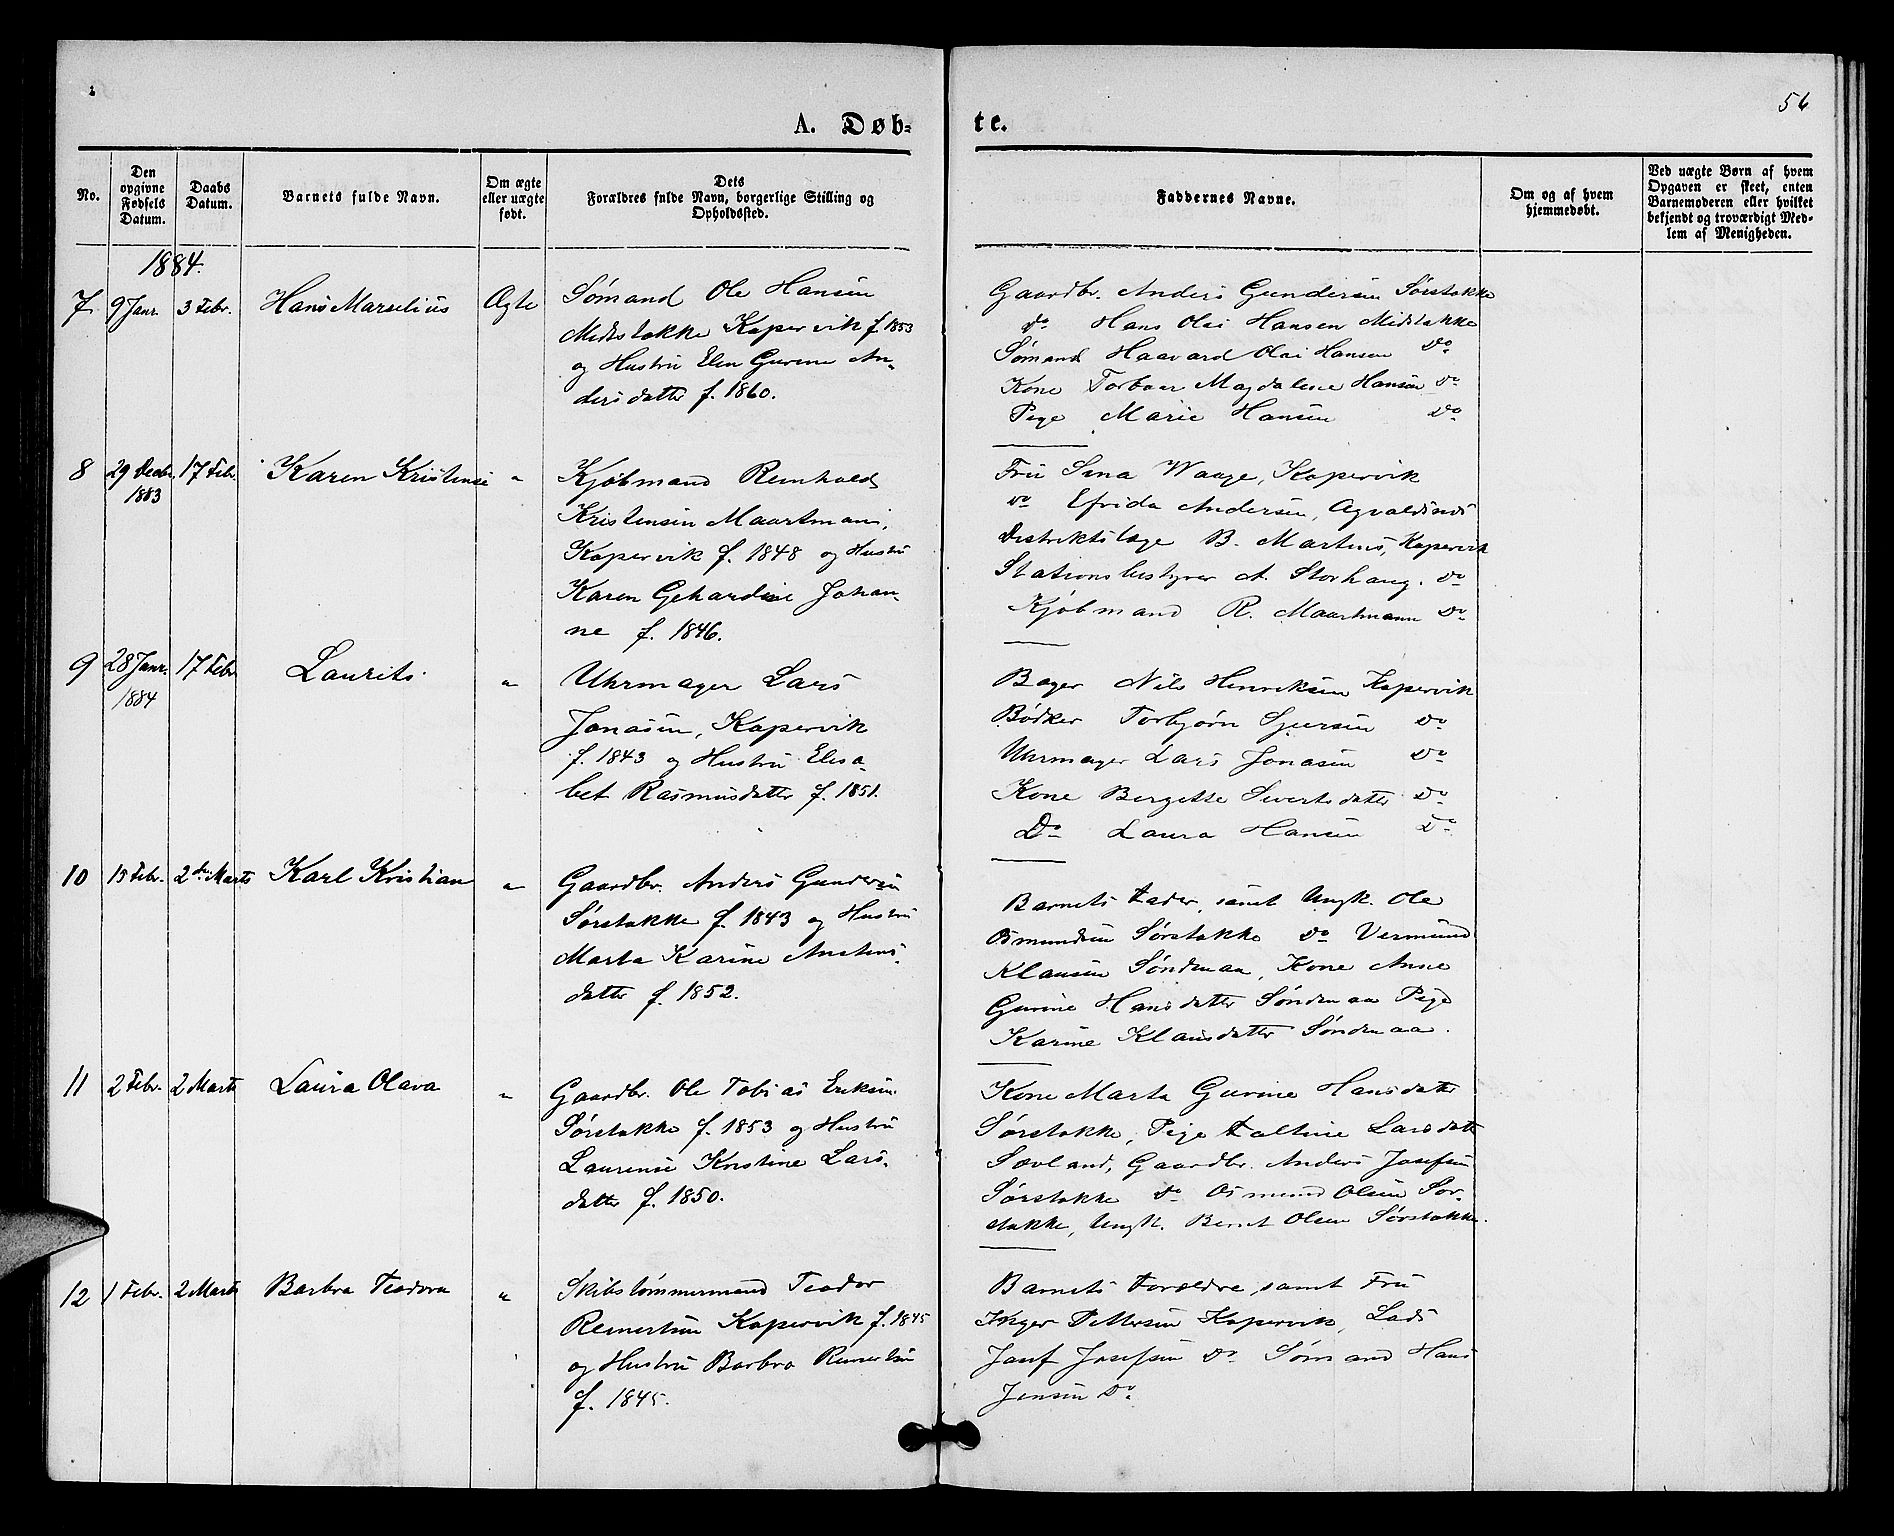 56
A. Døb-
te.
No.
Den opgivne Fødsels Datum.
Daabs Datum.
Barnets fulde Navn.
Om ægte eller uægte født.
Dets Forældres fulde Navn, borgerlige Stilling og Opholdssted.
Faddernes Navne.
Om og af hvem hjemmedøbt.
Ved uægte Børn af hvem Opgaven er skeet, enten Barnemoderen eller hvilket bekjendt og troværdigt Medlem af Menigheden.
1884.
7 9 Janr. 3 Febr. Hans Marselius Ægte
Sømand Ole Hansen
Midstokke Kopervik f. 1853
og Hustru Elen Gurine An-
dersdatter f. 1860.
Gaardbr. Anders Gundersen Sørstokke
do Hans Olai Hansen Midstokke
Sømand Haavard Olai Hansen do
Kone Torbaar Magdalene Hansen do
Pige Marie Hansen do
8 29 Decbr. 1883 17 Febr. Karen Kristense "
Kjøbmand Reinhold
Kristensen Maartmann,
Kopervik f. 1848 og Hustru
Karen Gehardine Johan-
ne f. 1846.
Fru Sena Waage, Kopervik
do Efrida Andersen,
Distriktslæge B. Martens, Kopervik
Stationsbestyrer A. Storhaug. do
Kjøbmand R. Maartmann do
9 28 Janr. 1884 17 Febr. Laurits "
Uhrmager Lars
Jonasen, Kopervik
f. 1843 og Hustru Elisa-
bet Rasmusdatter f. 1851.
Bager Nils Henriksen Kopervik
Bødker Torbjørn Sjursen do
Uhrmager Lars Jonasen do
Kone Bergette Sivertsdatter do
Do Laura Hansen do
10 15 Febr. 2den Marts Karl Kristian "
Gaardbr. Anders Gundersen
Sørstokke f. 1843 og Hustru
Marta Karine Anstens-
datter f. 1852.
Barnets Fader, samt Ungk. Ole
Osmundsen Sørstokke do Vermund
Klausen Søndenaa, Kone Anne
Gurine Hansdatter Søndenaa Pige
Karine Klausdatter Søndenaa.
11 2 Febr. 2 Marts Laura Olava "
Gaardbr. Ole Tobias Eriksen
Sørstokke f. 1853 og Hustru
Laurense Kristine Lars-
datter f. 1850.
Kone Marta Gurine Hansdatter
Sørstokke, Pige Taltine Larsdatter
Sævland, Gaardbr. Anders Josefsen
Sørstokke do Osmund Olsen Sør-
stokke, Ungk. Bernt Olsen Sørstokke.
12 1 Febr. 2 Marts Barbra Teodora "
Skibstømmermand Teodor
Reinertsen Kopervik f. 1845
og Hustru Barbra Reinertsen
f. 1845.
Barnets Forældre, samt Fru
Inger Pettersen Kopervik, Lods
Josef Josefsen do Sømand Hans
Jensen do